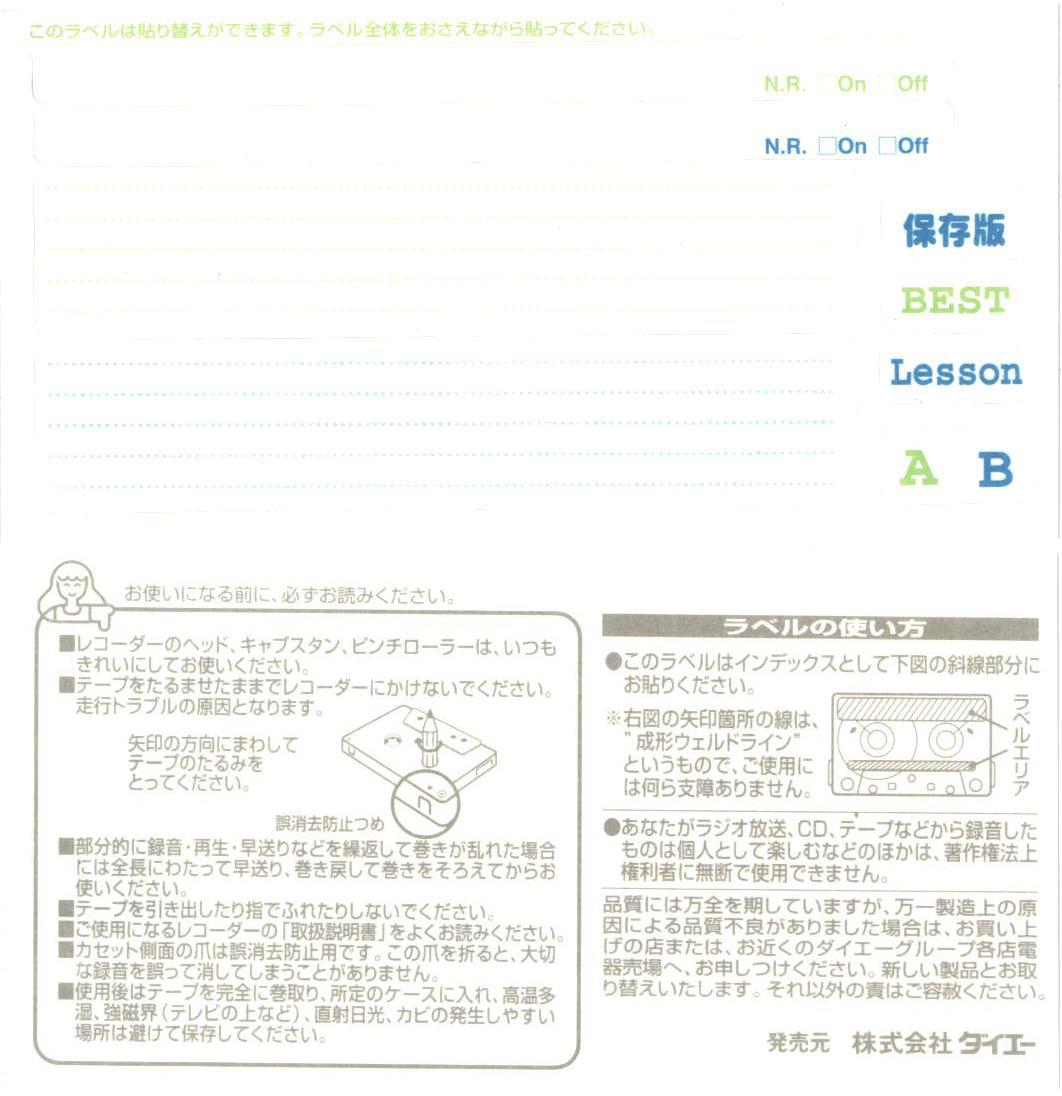 このラベルは貼り替えができます。ラベル全体をおさえながら貼ってください。
N.R. □On □Off
N.R. □On □Off
保存版
BEST
Lesson
A B
お使いになる前に、必ずお読みください。
■レコーダーのヘッド、キャプスタン、ピンチローラーは、いつも
きれいにしてお使いください。
■テープをたるませたままでレコーダーにかけないでください。
走行トラブルの原因となります。
矢印の方向にまわして
テープのたるみを
とってください。
誤消去防止つめ
■部分的に録音・再生・早送りなどを繰返して巻きが乱れた場合
には全長にわたって早送り、巻き戻して巻きをそろえてからお
使いください。
■テープを引き出したり指でふれたりしないでください。
■ご使用になるレコーダーの「取扱説明書」をよくお読みください。
■カセット側面の爪は誤消去防止用です。この爪を折ると、大切
な録音を誤って消してしまうことがありません。
■使用後はテープを完全に巻取り、所定のケースに入れ、高温多
湿、強磁界(テレビの上など)、直射日光、カビの発生しやすい
場所は避けて保存してください。
ラベルの使い方
●このラベルはインデックスとして下図の斜線部分に
お貼りください。
※右図の矢印箇所の線は、
"成形ウェルドライン"
というもので、ご使用に
は何ら支障ありません。
ラベルエリア
●あなたがラジオ放送、CD、テープなどから録音した
ものは個人として楽しむなどのほかは、著作権法上
権利者に無断で使用できません。
品質には万全を期していますが、万一製造上の原
因による品質不良がありました場合は、お買い上
げの店または、お近くのダイエーグループ各店電
器売場へ、お申しつけください。新しい製品とお取
り替えいたします。それ以外の責はご容赦ください。
発売元 株式会社 ダイエー